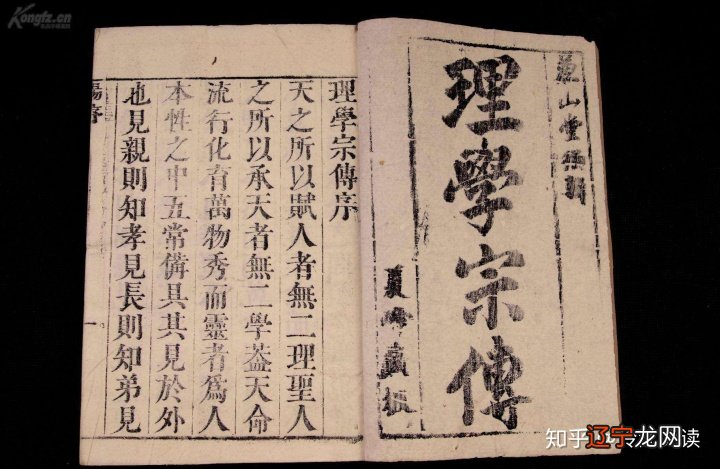 兼山堂
理學宗傳
夏峰藏板
理學宗傳序
天之所以賦人者無二理聖人
之所以承天者無二學葢天命
流行化育萬物秀而靈者為人
本性之中五常備具其見於外
也見親則知孝見長則知弟見
Kongfz.cn
知乎
辽宁龙网读